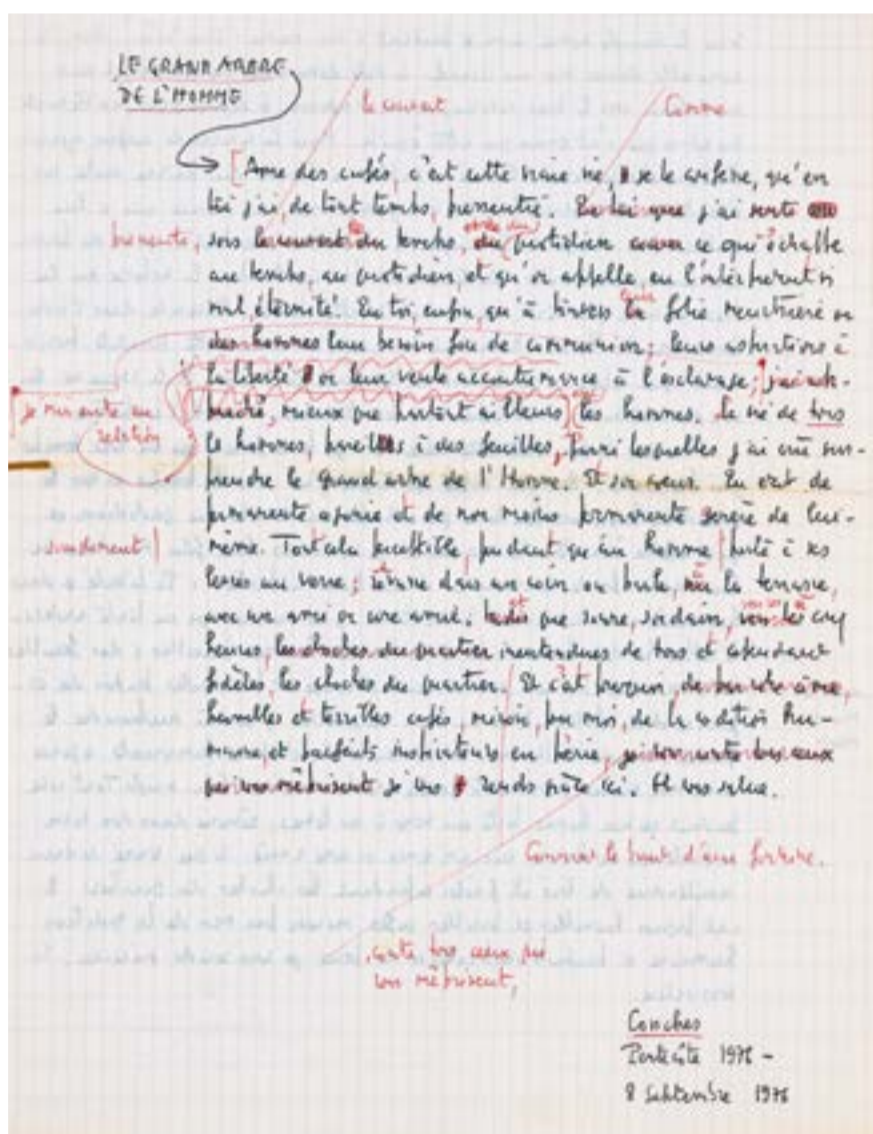 LE GRAND ARBRE
DE L'HOMME
le courant
Comme
Ame des cafés, c'est cette vraie vie, je le confesse, qu'en
toi j'ai, de tout temps, pressentie. En toi que j'ai senti
pressentie, sous le courant du temps, du quotidien ce qui échappe
au temps, au quotidien, et qu'on appelle, en l'interprétant si
mal, éternité! En toi, enfin, qu'à travers la folie meurtrière
des hommes leur besoin fou de communion; leurs aspirations à
la liberté ou leur veule accoutumance à l'esclavage;
mieux que partout ailleurs les hommes. la vie de tous
je me suis en
relation
les hommes, pareils à des feuilles, parmi lesquelles j'ai cru sur-
prendre le grand arbre de l'Homme. Et son aveu. En état de
permanente agonie et de non moins permanente genèse de lui-
même. Tout cela perceptible, pendant qu'un homme porte à ses
lèvres un verre; dans un coin ou parle, sur la terrasse,
avec un ami ou une amie; tandis que sonne, soudain, vers les cinq
heures, les cloches du quartier inentendues de tous et cependant
fidèles les cloches du quartier. Et c'est pourquoi,
humbles et terribles cafés, miroir, pour moi, de la condition hu-
maine, et parfaits inspirateurs en poésie, contre tous ceux
qui vous méprisent je vous rends grâce ici. Et vous salue.
Comme le fruit d'une
contre tous ceux qui
vous méprisent,
Conches
Pentecôte 1976 -
8 Septembre 1976